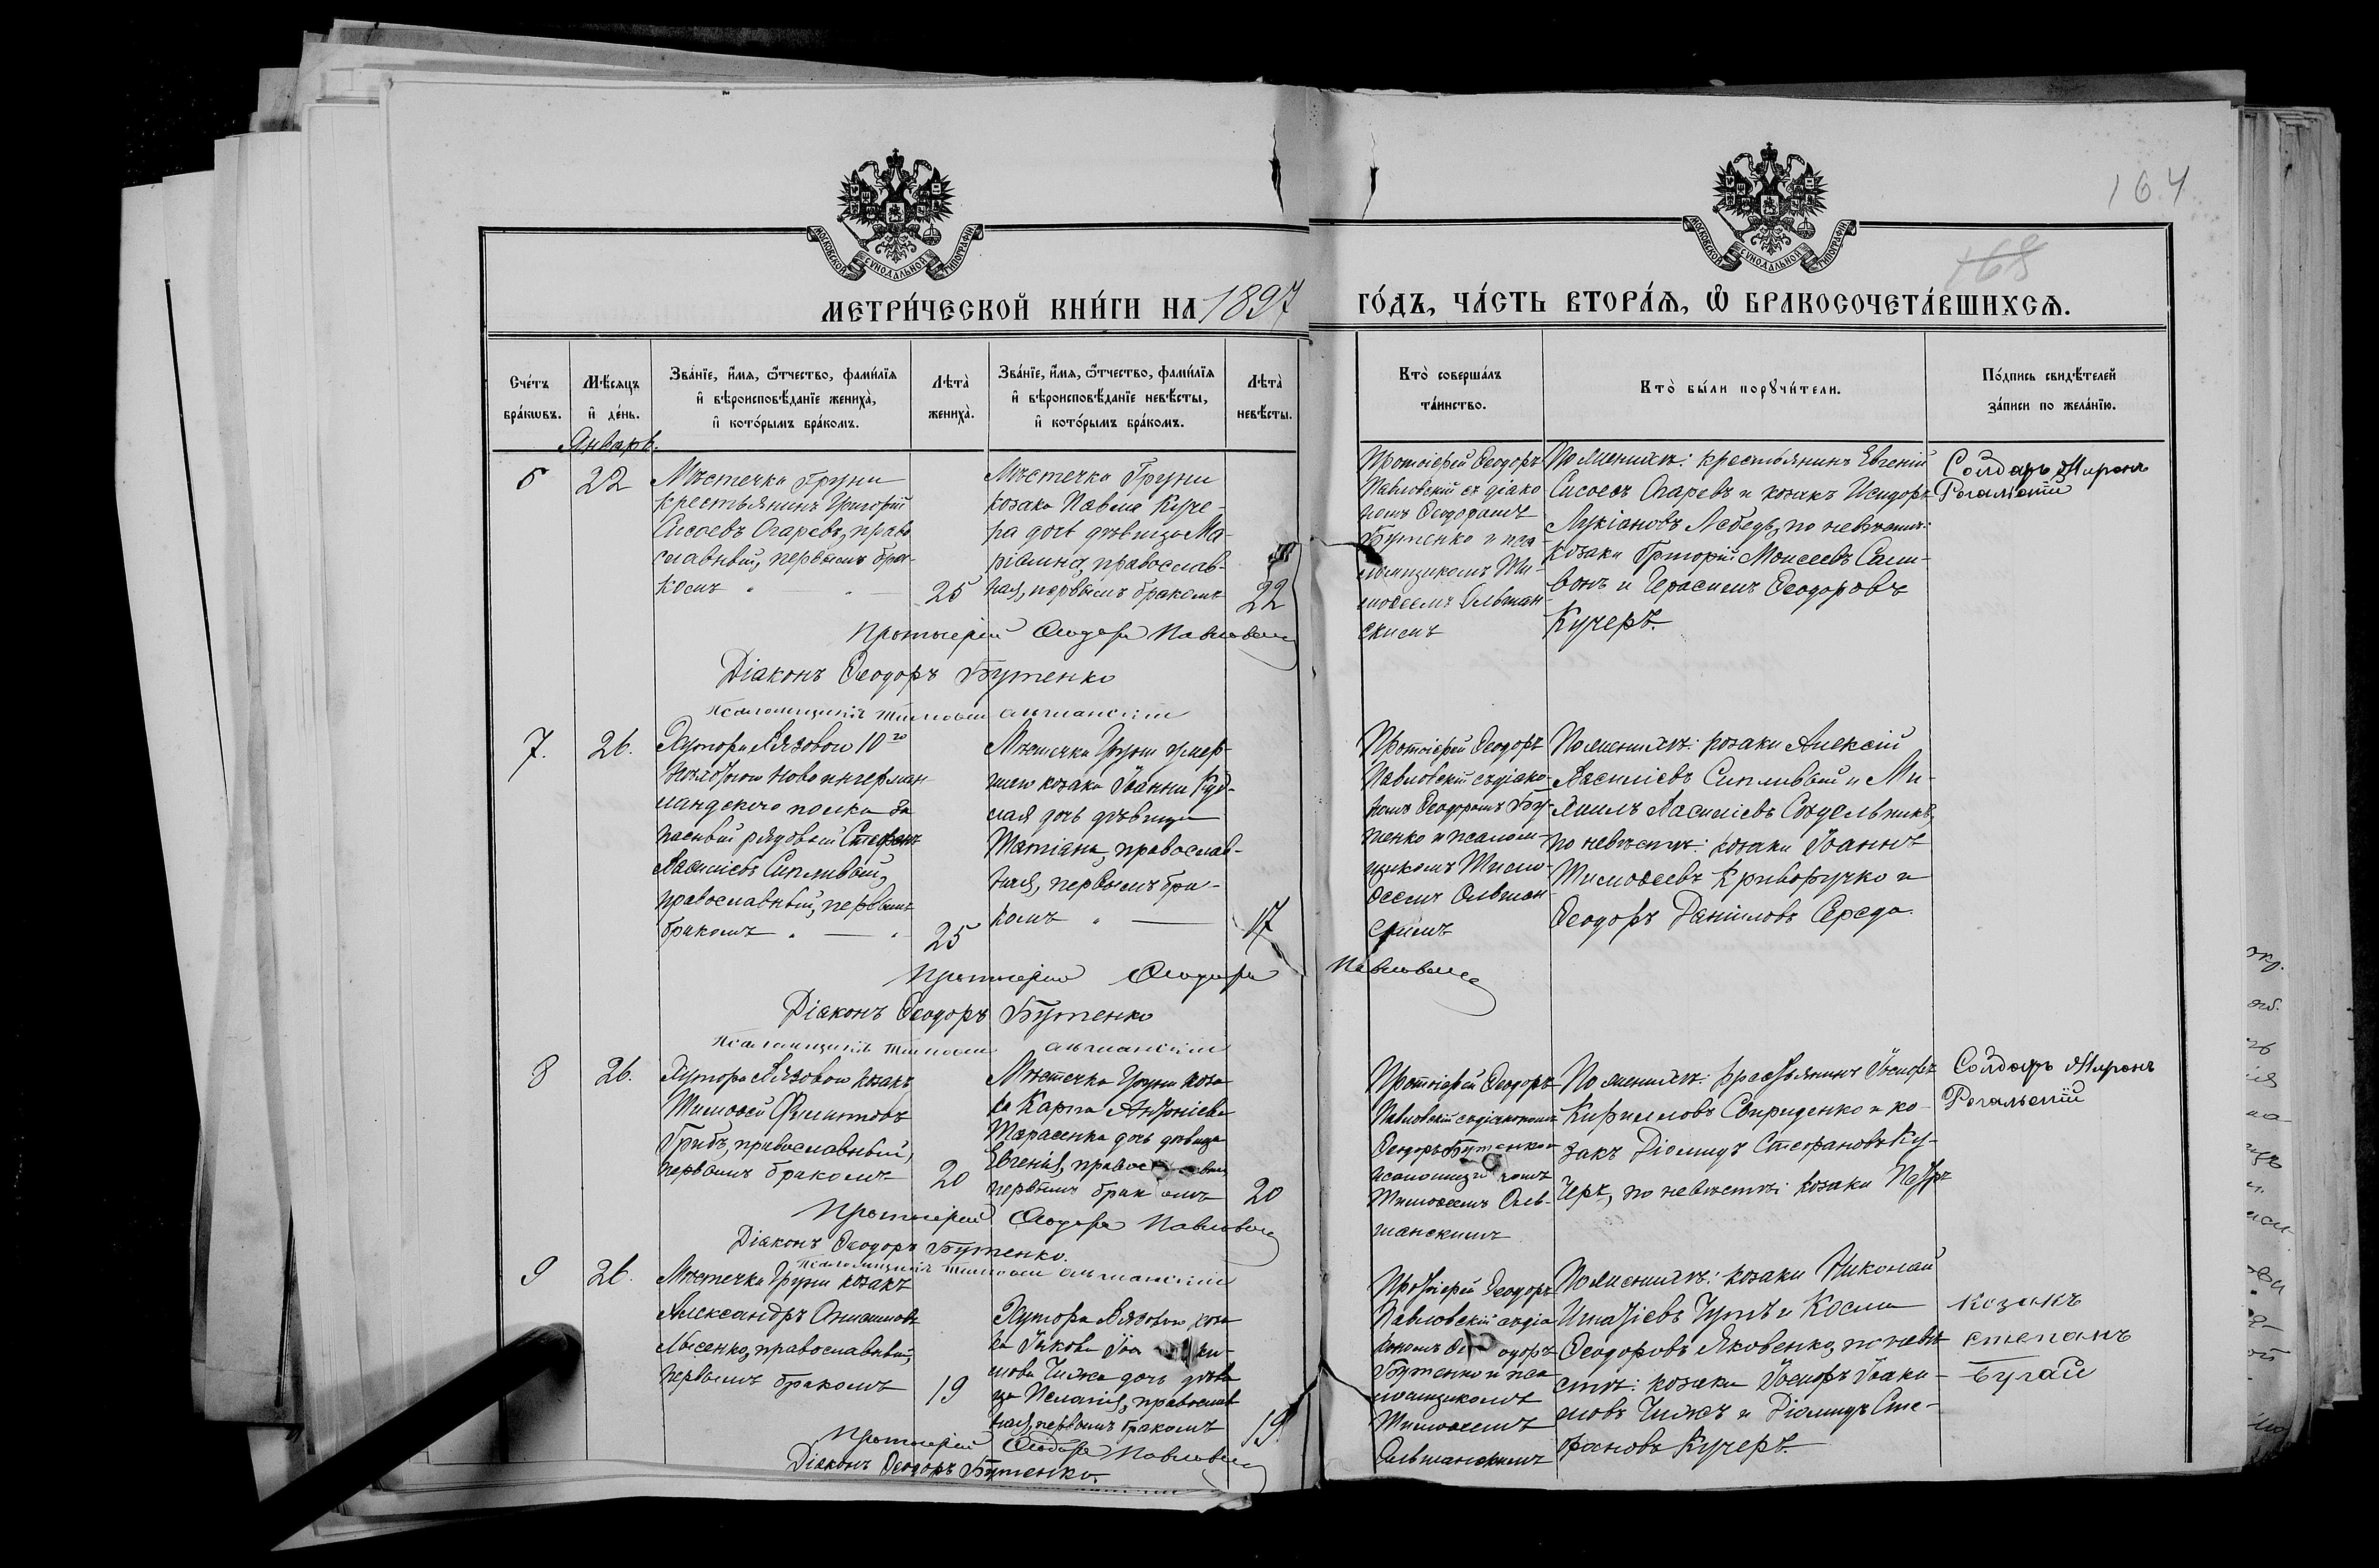 164
168
МОСКОВСКОЙ СѴНОДАЛЬНОЙ ТИПОГРАФІИ
МОСКОВСКОЙ СѴНОДАЛЬНОЙ ТИПОГРАФІИ
МЕТРИ́ЧЕСКОЙ КНИ́ГИ НА 1897
ГО́ДЪ, ЧА́СТЬ ВТОРА́Ѧ, Ѽ БРАКОСОЧЕТА́ВШИХСѦ.
Сче́тъ
бра́кѡвъ.
Мѣ́сяцъ
и҆ де́нь.
Зва́нїе, и҆́мя, ѻ҆́тчество, фами́лїя
и҆ вѣроисповѣ́данїе жениха̀,
и҆ кото́рымъ бра́комъ.
Лѣта̀
жениха̀.
Зва́нїе, и҆́мя, ѻ҆́тчество, фами́лїя
и҆ вѣроисповѣ́данїе невѣ́сты,
и҆ кото́рымъ бра́комъ.
Лѣта̀
невѣ́сты.
Кто̀ соверша́лъ
та́инство.
Кто̀ бы́ли порꙋчи́тели.
По́дпись свидѣ́телей
за́писи по жела́нїю.
Январь.
6
22
Мѣстечка Груни
крестьянинъ Григорій
Сисоевъ Огаревъ, право
славный, первымъ бра-
комъ
25
Мѣстечка Груни
козака Павла Куче-
ра дочь дѣвица Ма-
ріамна, православ-
ная, первымъ бракомъ
22
Протоіерей Ѳеодоръ
Павловскій съ діако
номъ Ѳеодоромъ
Бутенко и пса
ломщикомъ Ти-
моѳеемъ Ольшан-
скимъ
По женихѣ: крестьянинъ Евгеній
Сисоевъ Огаревъ и козакъ Исидоръ
Лукіановъ Лебедь, по невѣстѣ:
козаки Григорій Моисеевъ Сали-
вонъ и Герасимъ Ѳеодоровъ
Кучеръ.
Солдатъ Миронъ
Рогальскій
Протоіерей Ѳеодоръ Павловскій
Діаконъ Ѳеодоръ Бутенко
Псаломщикъ Тимоѳей Ольшанскій
7.
26.
Хутора Вязоваго 10го
пѣхотнаго Новоингерман-
ландскаго полка за
пасный рядовой Стефанъ
Василіевъ Сипливый,
православный, первымъ
бракомъ
25
Мѣстечка Груни умер-
шаго козака Іоанна
дочь дѣвица
Татіана, православ-
ная, первымъ бра-
комъ
17
Протоіерей Ѳеодоръ
Павловскій съ діако-
номъ Ѳеодоромъ Бу-
тенко и псалом-
щикомъ Тимо-
ѳеемъ Ольшан-
скимъ
По женихѣ: козаки Алексій
Василіевъ Сипливый и Ми-
хаилъ Василіевъ Сѣдельникъ,
по невѣстѣ: козаки Іоаннъ
Тимоѳеевъ Криворучко и
Ѳеодоръ Даніиловъ Середа.
Протоіерей Ѳеодоръ Павловскій
Діаконъ Ѳеодоръ Бутенко
Псаломщикъ Тимоѳей Ольшанскій
8
26.
Хутора Вязоваго козакъ
Тимоѳей Филипповъ
Грибъ, православный,
первымъ бракомъ
20
Мѣстечка Груни коза
ка Карпа Антоніева
Тарасенка дочь дѣвица
Евгенія, православная,
первымъ бракомъ
20
Протоіерей Ѳеодоръ
Павловскій съ діакономъ
Ѳеодоръ Бутенко и
псаломщикомъ
Тимоѳеемъ Оль-
шанскимъ
По женихѣ: крестьянинъ Іосифъ
Кирилловъ Свириденко и ко-
закъ Діомидъ Стефановъ Ку-
черъ, по невѣстѣ: козаки Петръ
Солдатъ Миронъ
Рогальскій
Протоіерей Ѳеодоръ Павловскій
Діаконъ Ѳеодоръ Бутенко.
Псаломщикъ Тимоѳей Ольшанскій
9
26.
Мѣстечка Груни козакъ
Александръ
Лысенко, православный,
первымъ бракомъ
19
Хутора Вязоваго коза
ка Іакова Іоаки-
мова Чижа дочь дѣви
ца Пелагія, православ
ная, первымъ бракомъ
19.
Протоіерей Ѳеодоръ
Павловскій съ діа
кономъ Ѳеодоръ
Бутенко и пса
ломщикомъ
Тимоѳеемъ
Ольшанскимъ
По женихѣ: козаки Николай
Игнатіевъ и Косма
Ѳеодоровъ Яковенко, по невѣ
стѣ: козаки Іосифъ Іоаки-
мовъ Чижъ и Діомидъ Сте-
фановъ Кучеръ.
козакъ
степанъ
Бугай
Протоіерей Ѳеодоръ Павловскій
Діаконъ Ѳеодоръ Бутенко.